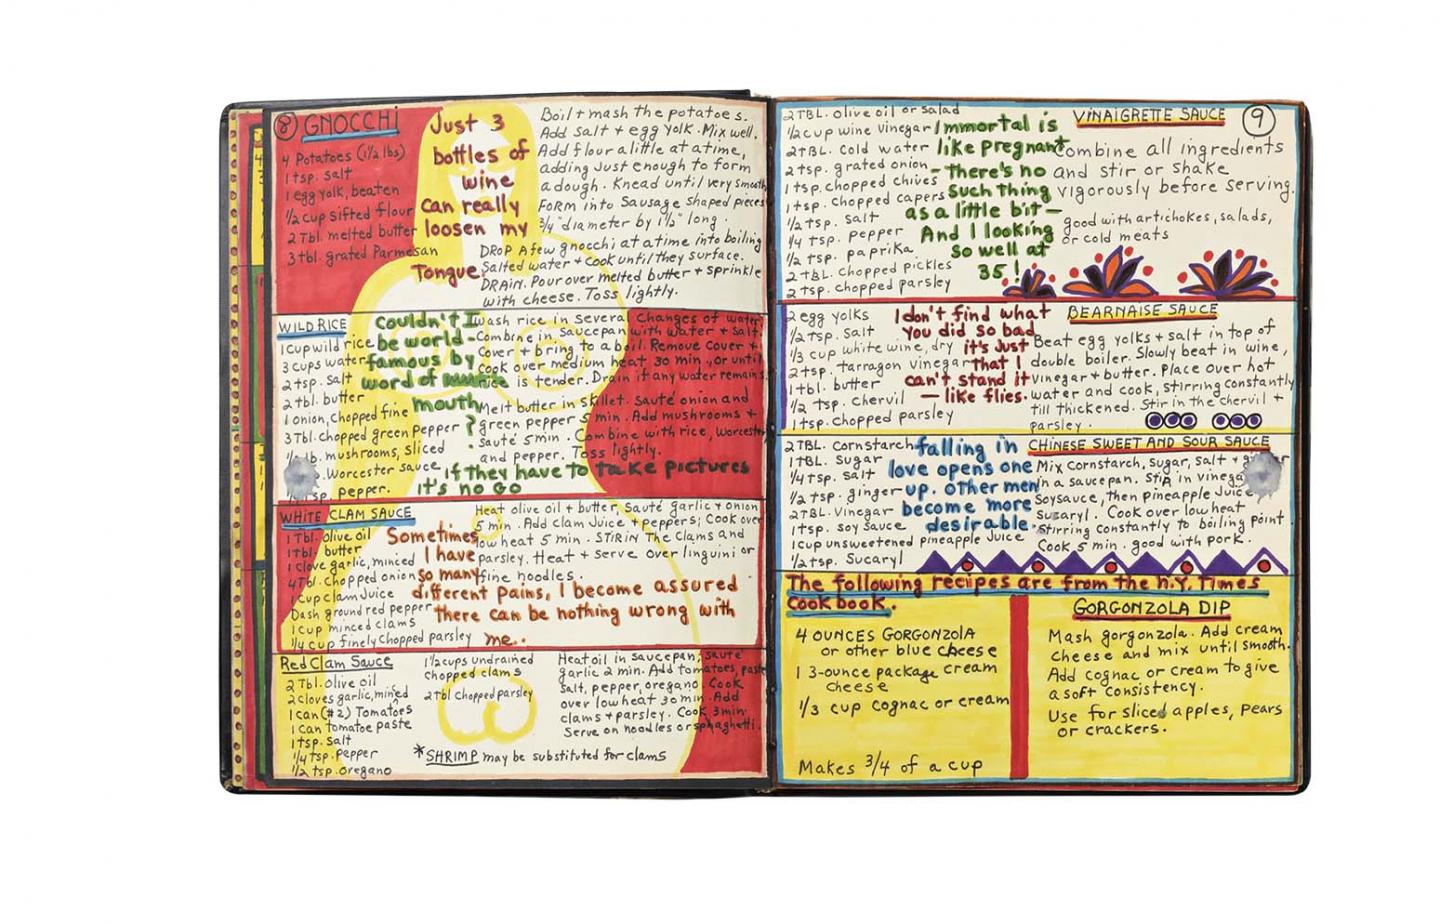 8 GNOCCHI
4 Potatoes (1½ lbs)
1 tsp. salt
1 egg yolk, beaten
½ cup sifted flour
2 Tbl. melted butter
3 tbl. grated Parmesan
Just 3
bottles of
wine
can really
loosen my
Tongue.
Boil + mash the potatoes.
Add salt + egg yolk. Mix well.
Add flour a little at a time,
adding Just enough to form
a dough. Knead until very smooth
FORM into Sausage shaped pieces
¾" diameter by 1½" long.
DROP A few gnocchi at a time into boiling
Salted water + cook until they surface.
DRAIN. Pour over melted butter + sprinkle
with cheese. Toss lightly.
WILD RICE
1 cup wild rice
3 cups water
2 tsp. salt
2 tbl. butter
1 onion, chopped fine
3 Tbl. chopped green pepper
lb. mushrooms, sliced
Worcester sauce
tsp. pepper.
couldn't I
be world-
famous by
word of
mouth
?
if they have to take pictures
it's no go
wash rice in several Changes of water
Combine in saucepan with water + salt.
Cover + bring to a boil. Remove cover +
cook over medium heat 30 min., or until
rice is tender. Drain if any water remains.
Melt butter in skillet. sauté onion and
green pepper 5 min. Add mushrooms +
sauté 5 min. Combine with rice, Worcester
and pepper. Toss lightly.
WHITE CLAM SAUCE
1 Tbl. olive oil
1 tbl. butter
1 clove garlic, minced
4 Tbl. chopped onion
1 cup Clam Juice
Dash ground red pepper
1 cup minced clams
¼ cup finely chopped parsley
Sometimes
I have
so many
different pains, I become assured
there can be nothing wrong with
me..
Heat olive oil + butter. Sauté garlic + onion
5 min. Add clam Juice + peppers; Cook over
low heat 5 min. STIR IN The clams and
parsley. Heat + serve over linguini or
fine noodles.
Red Clam Sauce
2 Tbl. olive oil
2 cloves garlic, minced
1 can (#2) Tomatoes
1 can tomatoe paste
1 tsp. salt
¼ tsp. pepper
½ tsp. oregano
1½ cups undrained
chopped clams
2 Tbl chopped parsley
Heat oil in saucepan; sauté
garlic 2 min. Add tomatoes, paste
salt, pepper, oregano. Cook
over low heat 30 min. Add
clams + parsley. Cook 3 min.
Serve on noodles or spaghetti.
*SHRIMP may be substituted for clams
VINAIGRETTE SAUCE 9
2 TBL. olive oil or salad
½ cup wine vinegar
2 TBL. cold water
2 tsp. grated onion
1 tsp. chopped chives
1 tsp. chopped capers
½ tsp. salt
¼ tsp. pepper
½ tsp. paprika
2 TBL. chopped pickles
2 tsp. chopped parsley
Immortal is
like pregnant
- there's no
such thing
as a little bit—
And I looking
so well at
35!
Combine all ingredients
and stir or shake
vigorously before serving.
good with artichokes, salads,
or cold meats
BEARNAISE SAUCE
2 egg yolks
½ tsp. salt
⅓ cup white wine, dry
2 tsp. tarragon vinegar
1 tbl. butter
½ tsp. chervil
1 tsp. chopped parsley
I don't find what
you did so bad,
it's just
that I
can't stand it
— like flies.
Beat egg yolks + salt in top of
double boiler. Slowly beat in wine,
vinegar + butter. Place over hot
water and cook, stirring constantly
till thickened. Stir in the chervil +
parsley.
CHINESE SWEET AND SOUR SAUCE
2 TBL. Cornstarch
1 TBL. Sugar
¼ tsp. salt
½ tsp. ginger
2 TBL. Vinegar
1 tsp. soy Sauce
1 cup unsweetened pineapple Juice
½ tsp. Sucaryl
falling in
love opens one
up. other men
become more
desirable.
Mix cornstarch, sugar, salt +
in a saucepan. Stir in
Soysauce, then pineapple Juice
Sucaryl. Cook over low heat
stirring constantly to boiling point.
Cook 5 min. good with pork.
The following recipes are from the N.Y. Times
cook book.
GORGONZOLA DIP
4 OUNCES GORGONZOLA
or other blue cheese
1 3-ounce package cream
cheese
⅓ cup cognac or cream
Makes ¾ of a cup
Mash gorgonzola. Add cream
cheese and mix until smooth.
Add cognac or cream to give
a soft consistency.
Use for sliced apples, pears
or crackers.